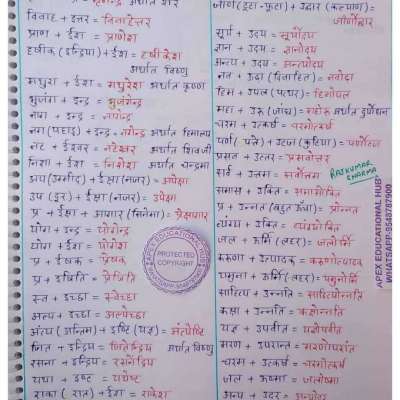 विवाह + इत्तर = विवाहेत्तर
प्राण + ईश = प्राणेश
हृषीक (इन्द्रिय) + ईश = हृषीकेश
अर्थात विष्णु
मथुरा + ईश = मथुरेश अर्थात कृष्ण
भुजंग + इन्द्र = भुजंगेन्द्र
नग(पहाड़) + इन्द्र = नगेन्द्र अर्थात हिमालय
अर्थात शिवजी
निशा + ईश = निशेश अर्थात चन्द्रमा
अप(उम्मीद) + ईक्षा(नजर) = अपेक्षा
उप (दूर) + ईक्षा(नजर) = उपेक्षा
प्र + ईक्षा + आगार (सिनेमा) = प्रेक्षागार
योग + इन्द्र = योगेन्द्र
योग + ईश = योगेश
प्र + ईक्षक = प्रेक्षक
स्व + इच्छा = स्वेच्छा
अल्प + इच्छा = अल्पेच्छा
अन्त्य (अन्तिम) + इष्टि (यज्ञ) = अन्त्येष्टि
जित + इन्द्रिय = जितेन्द्रिय अर्थात विष्णु
रसना + इन्द्रिय = रसनेन्द्रिय
यथा + इष्ट = यथेष्ट
राका (रात) + ईश = राकेश
जीर्ण(टूटा-फूटा) + उद्धार (कल्याण) =
जीर्णोद्धार
सूर्य + उदय = सूर्योदय
ज्ञान + उदय = ज्ञानोदय
अन्त्य + उदय = अन्त्योदय
नव + ऊढ़ा (विवाहित) = नवोढ़ा
हिम + उपल (पत्थर) = हिमोपल
महा + ऊरु (जांघ) = महोरु अर्थात दुर्योधन
चरम + उत्कर्ष = चरमोत्कर्ष
पर्ण (पत्ते) + उटज (कुटिया) = पर्णोटज
प्रश्न + उत्तर = प्रश्नोत्तर
सर्व + उत्तम = सर्वोत्तम
RAJKUMAR
SHARMA
समास + उक्ति = समासोक्ति
प्र + उन्नत (बहुत ऊँचा) = प्रोन्नत
व्यंग्य + उक्ति = व्यंग्योक्ति
जल + ऊर्मि (लहर) = जलोर्मि
करुणा + उत्पादक = करुणोत्पादक
यमुना + ऊर्मि (लहर) = यमुनोर्मि
साहित्य + उन्नति = साहित्योन्नति
कक्षा + उन्नति = कक्षोन्नति
यज्ञ + उपवीत = यज्ञोपवीत
मरण + उपरान्त = मरणोपरांत
चरम + उत्कर्ष = चरमोत्कर्ष
जल + ऊष्मा = जलोष्मा
अन्य + उदर = अन्योदर
APEX EDUCATIONAL HUB
PROTECTED
COPYRIGHT
APEX EDUCATIONAL HUB
WHATSAPP-9548787900